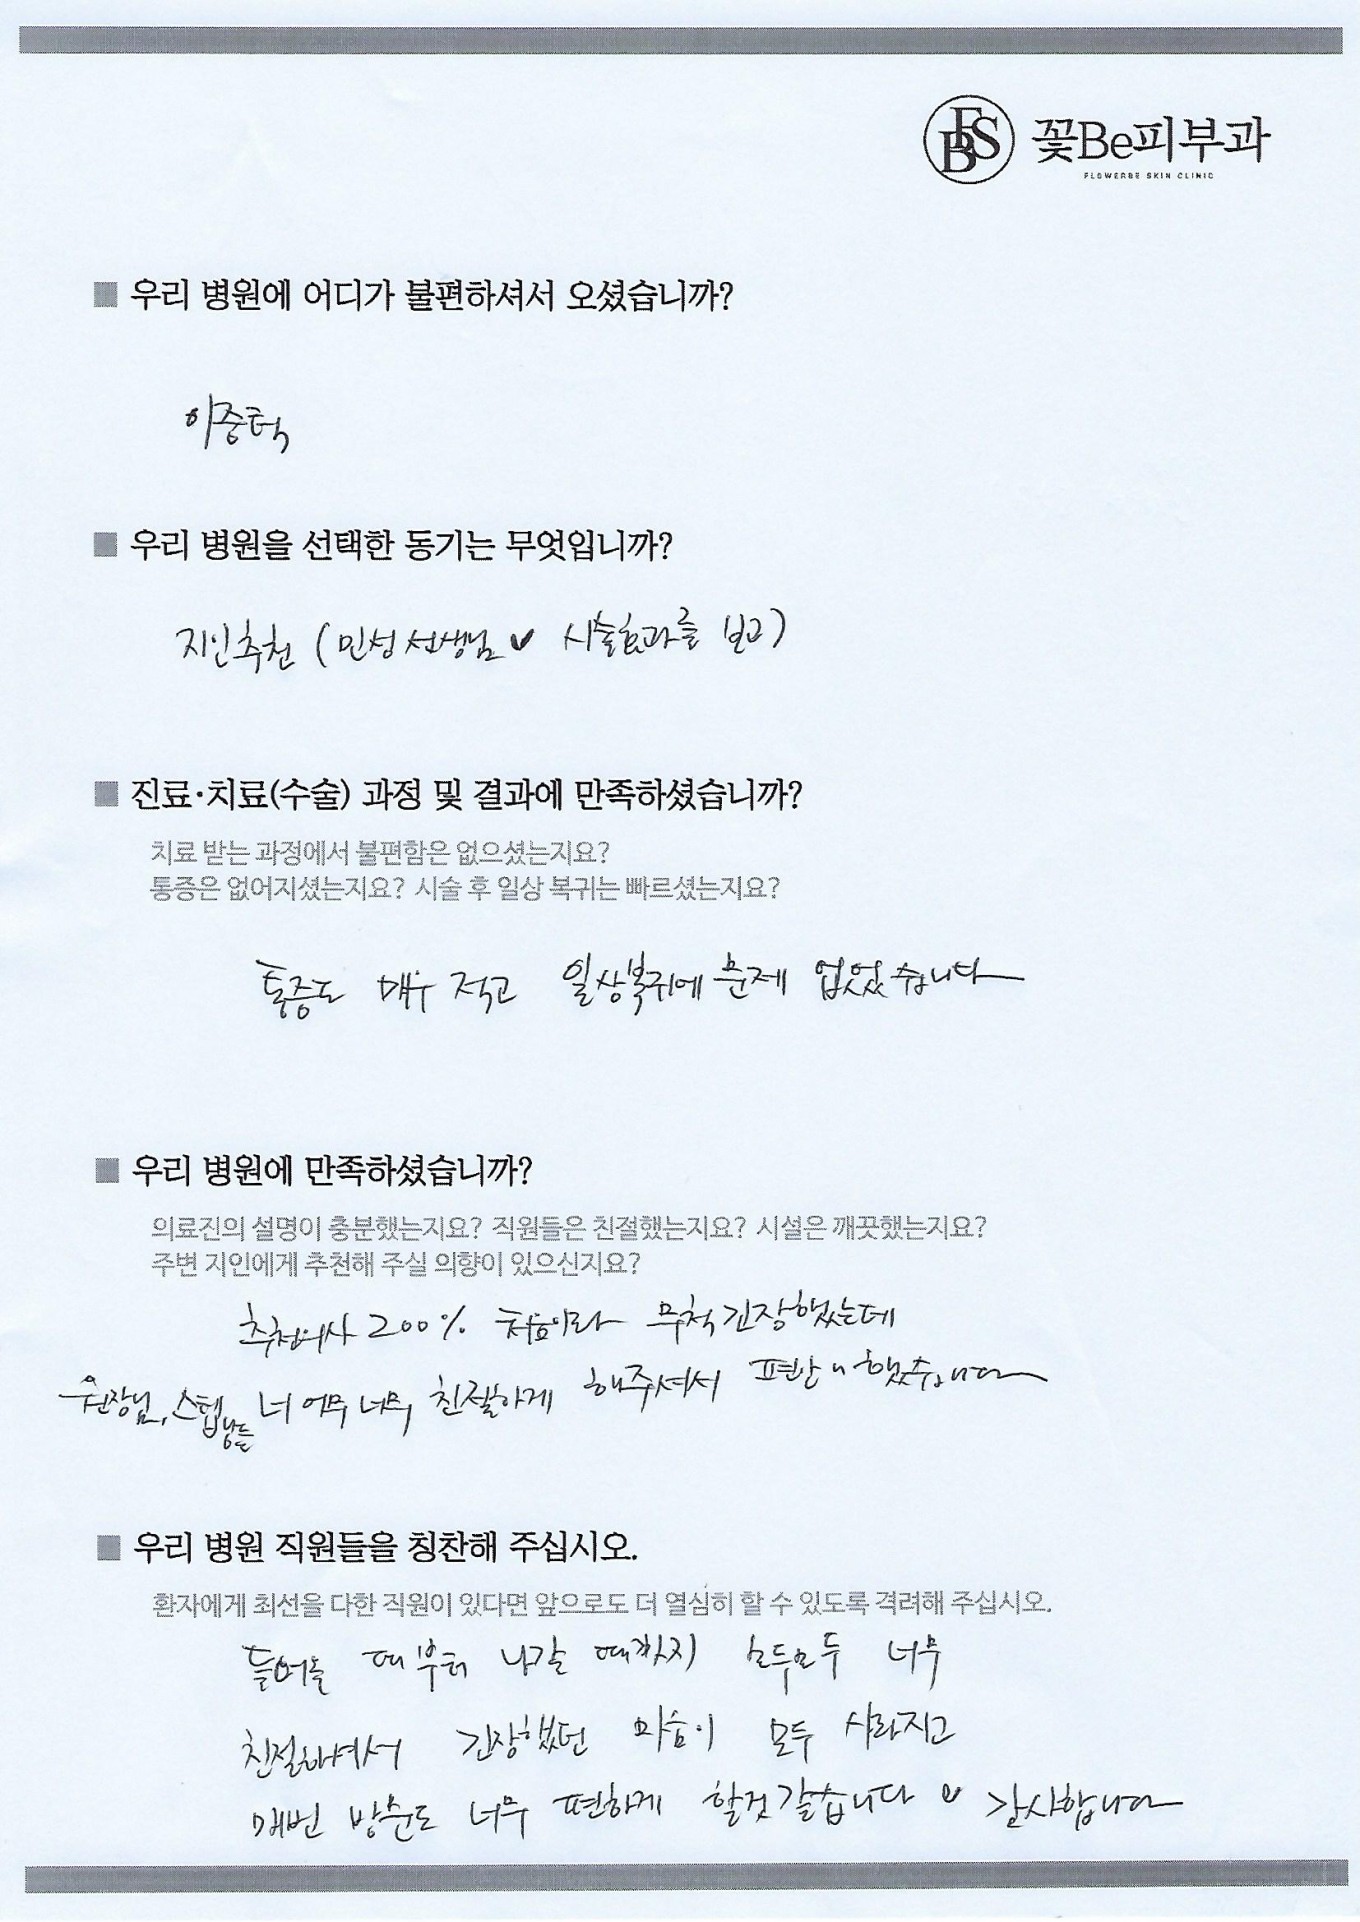 FBS 꽃Be피부과
FLOWERBE SKIN CLINIC
■ 우리 병원에 어디가 불편하셔서 오셨습니까?
이중턱
■ 우리 병원을 선택한 동기는 무엇입니까?
지인추천 (민성선생님♥ 시술효과를 보고)
■ 진료·치료(수술) 과정 및 결과에 만족하셨습니까?
치료 받는 과정에서 불편함은 없으셨는지요?
통증은 없어지셨는지요? 시술 후 일상 복귀는 빠르셨는지요?
통증도 매우 적고 일상복귀에 문제 없었습니다
■ 우리 병원에 만족하셨습니까?
의료진의 설명이 충분했는지요? 직원들은 친절했는지요? 시설은 깨끗했는지요?
주변 지인에게 추천해 주실 의향이 있으신지요?
추천의사 200% 처음이라 무척 긴장했는데
원장님, 스텝님들 너무 너무 친절하게 해주셔서 편안히했습니다
■ 우리 병원 직원들을 칭찬해 주십시오.
환자에게 최선을 다한 직원이 있다면 앞으로도 더 열심히 할 수 있도록 격려해 주십시오.
들어올 때부터 나갈 때까지 모두모두 너무
친절하셔서 긴장했던 마음이 모두 사라지고
매번 방문도 너무 편하게 할것 같습니다 ♡ 감사합니다